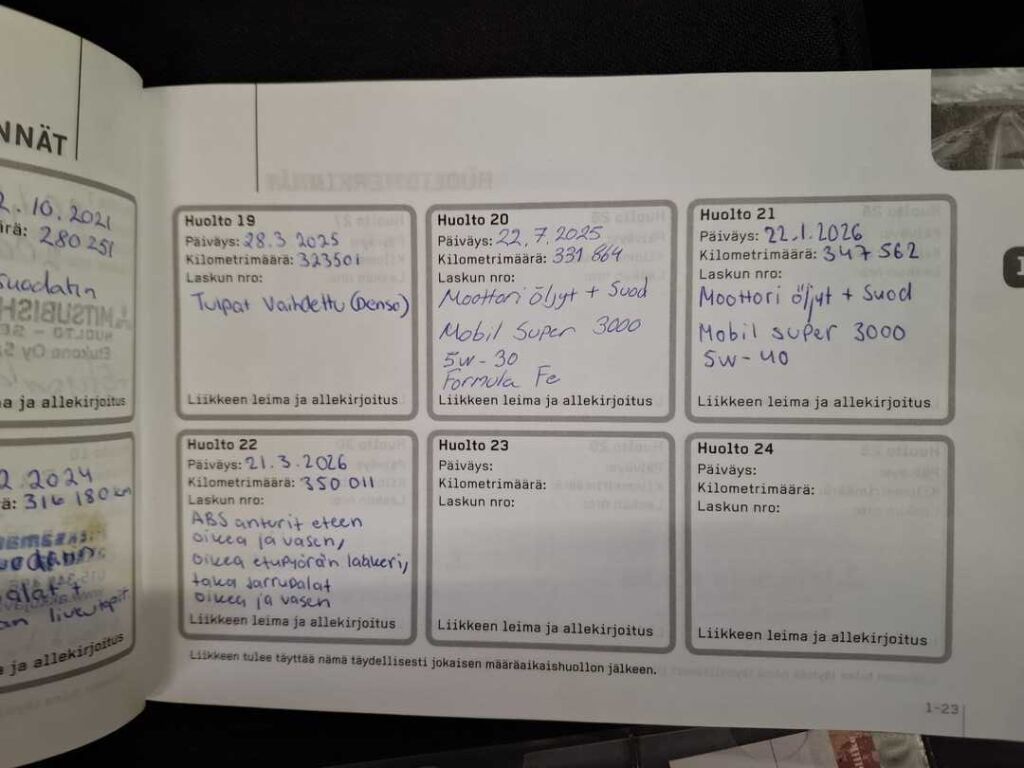 NNÄT
2.10.2021
irä: 280 251
suodatin
a ja allekirjoitus
2.2024
ä: 316 180 km
alat +
a ja allekirjoitus
Huolto 19
Päiväys: 28.3 2025
Kilometrimäärä: 323501
Laskun nro:
Tulpat Vaihdettu (Denso)
Liikkeen leima ja allekirjoitus
Huolto 20
Päiväys: 22.7.2025
Kilometrimäärä: 331 664
Laskun nro:
Moottori öljyt + Suod
Mobil Super 3000
5w-30
Formula Fe
Liikkeen leima ja allekirjoitus
Huolto 21
Päiväys: 22.1.2026
Kilometrimäärä: 347 562
Laskun nro:
Moottori öljyt + Suod
Mobil super 3000
5w-40
Liikkeen leima ja allekirjoitus
Huolto 22
Päiväys: 21.3.2026
Kilometrimäärä: 350 011
Laskun nro:
ABS anturit eteen
oikea ja vasen,
oikea etupyörän laakeri,
taka jarrupalat
oikea ja vasen
Liikkeen leima ja allekirjoitus
Huolto 23
Päiväys:
Kilometrimäärä:
Laskun nro:
Liikkeen leima ja allekirjoitus
Huolto 24
Päiväys:
Kilometrimäärä:
Laskun nro:
Liikkeen leima ja allekirjoitus
Liikkeen tulee täyttää nämä täydellisesti jokaisen määräaikaishuollon jälkeen.
1-23